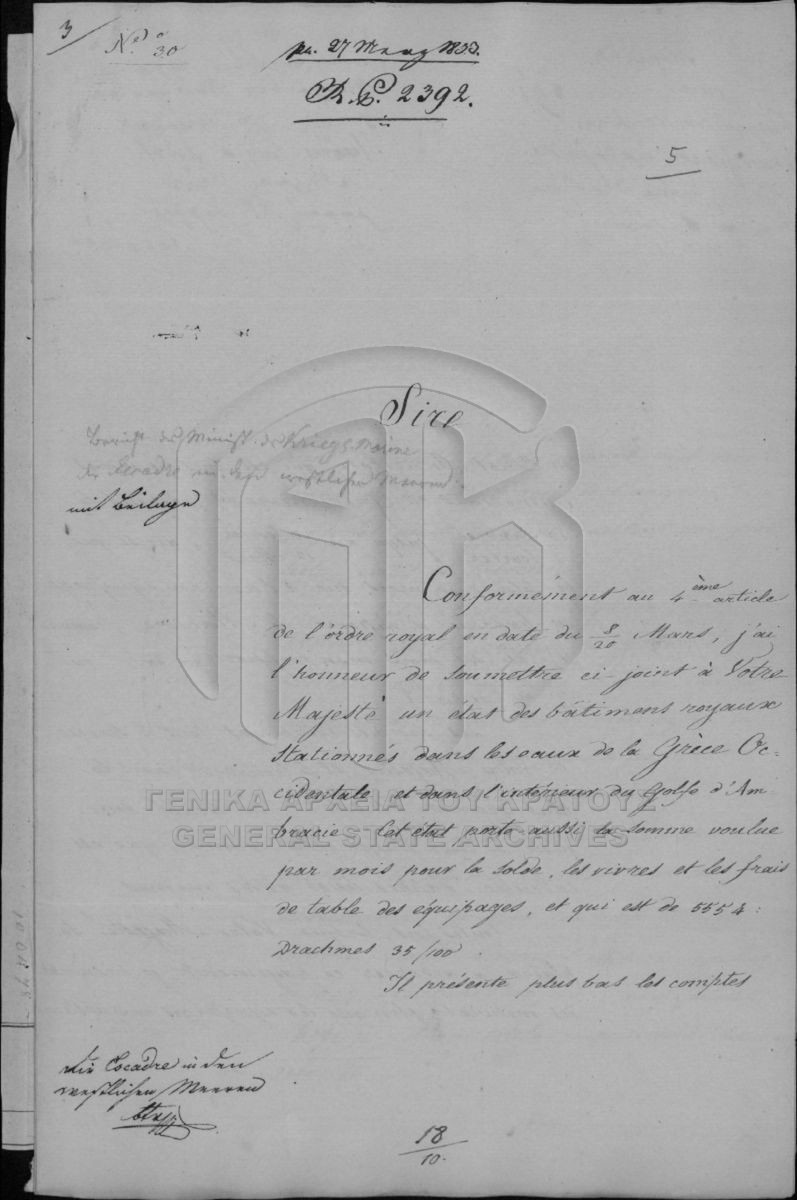 3
N.º 30
pr. 27 Merz 1833.
R. P. 2392.
5
Sire
Bericht des Minist. der Kriegs Marine
die Escadre in den westlichen Meeren
mit Beilage
Conformément au 4ème article
de l'ordre royal en date du 8/20 Mars, j'ai
l'honneur de soumettre ci-joint à Votre
Majesté un état des bâtimens royaux
stationnés dans les eaux de la Grèce Oc-
cidentale et dans l'intérieur du Golfe d'Am
bracie. Cet état porte aussi la somme voulue
par mois pour la solde, les vivres et les frais
de table des équipages, et qui est de 5554:
Drachmes 35/100.
Il présente plus bas les comptes
ΓΕΝΙΚΑ ΑΡΧΕΙΑ ΤΟΥ ΚΡΑΤΟΥΣ
GENERAL STATE ARCHIVES
die Escadre in den
westlichen Meeren
18/10.